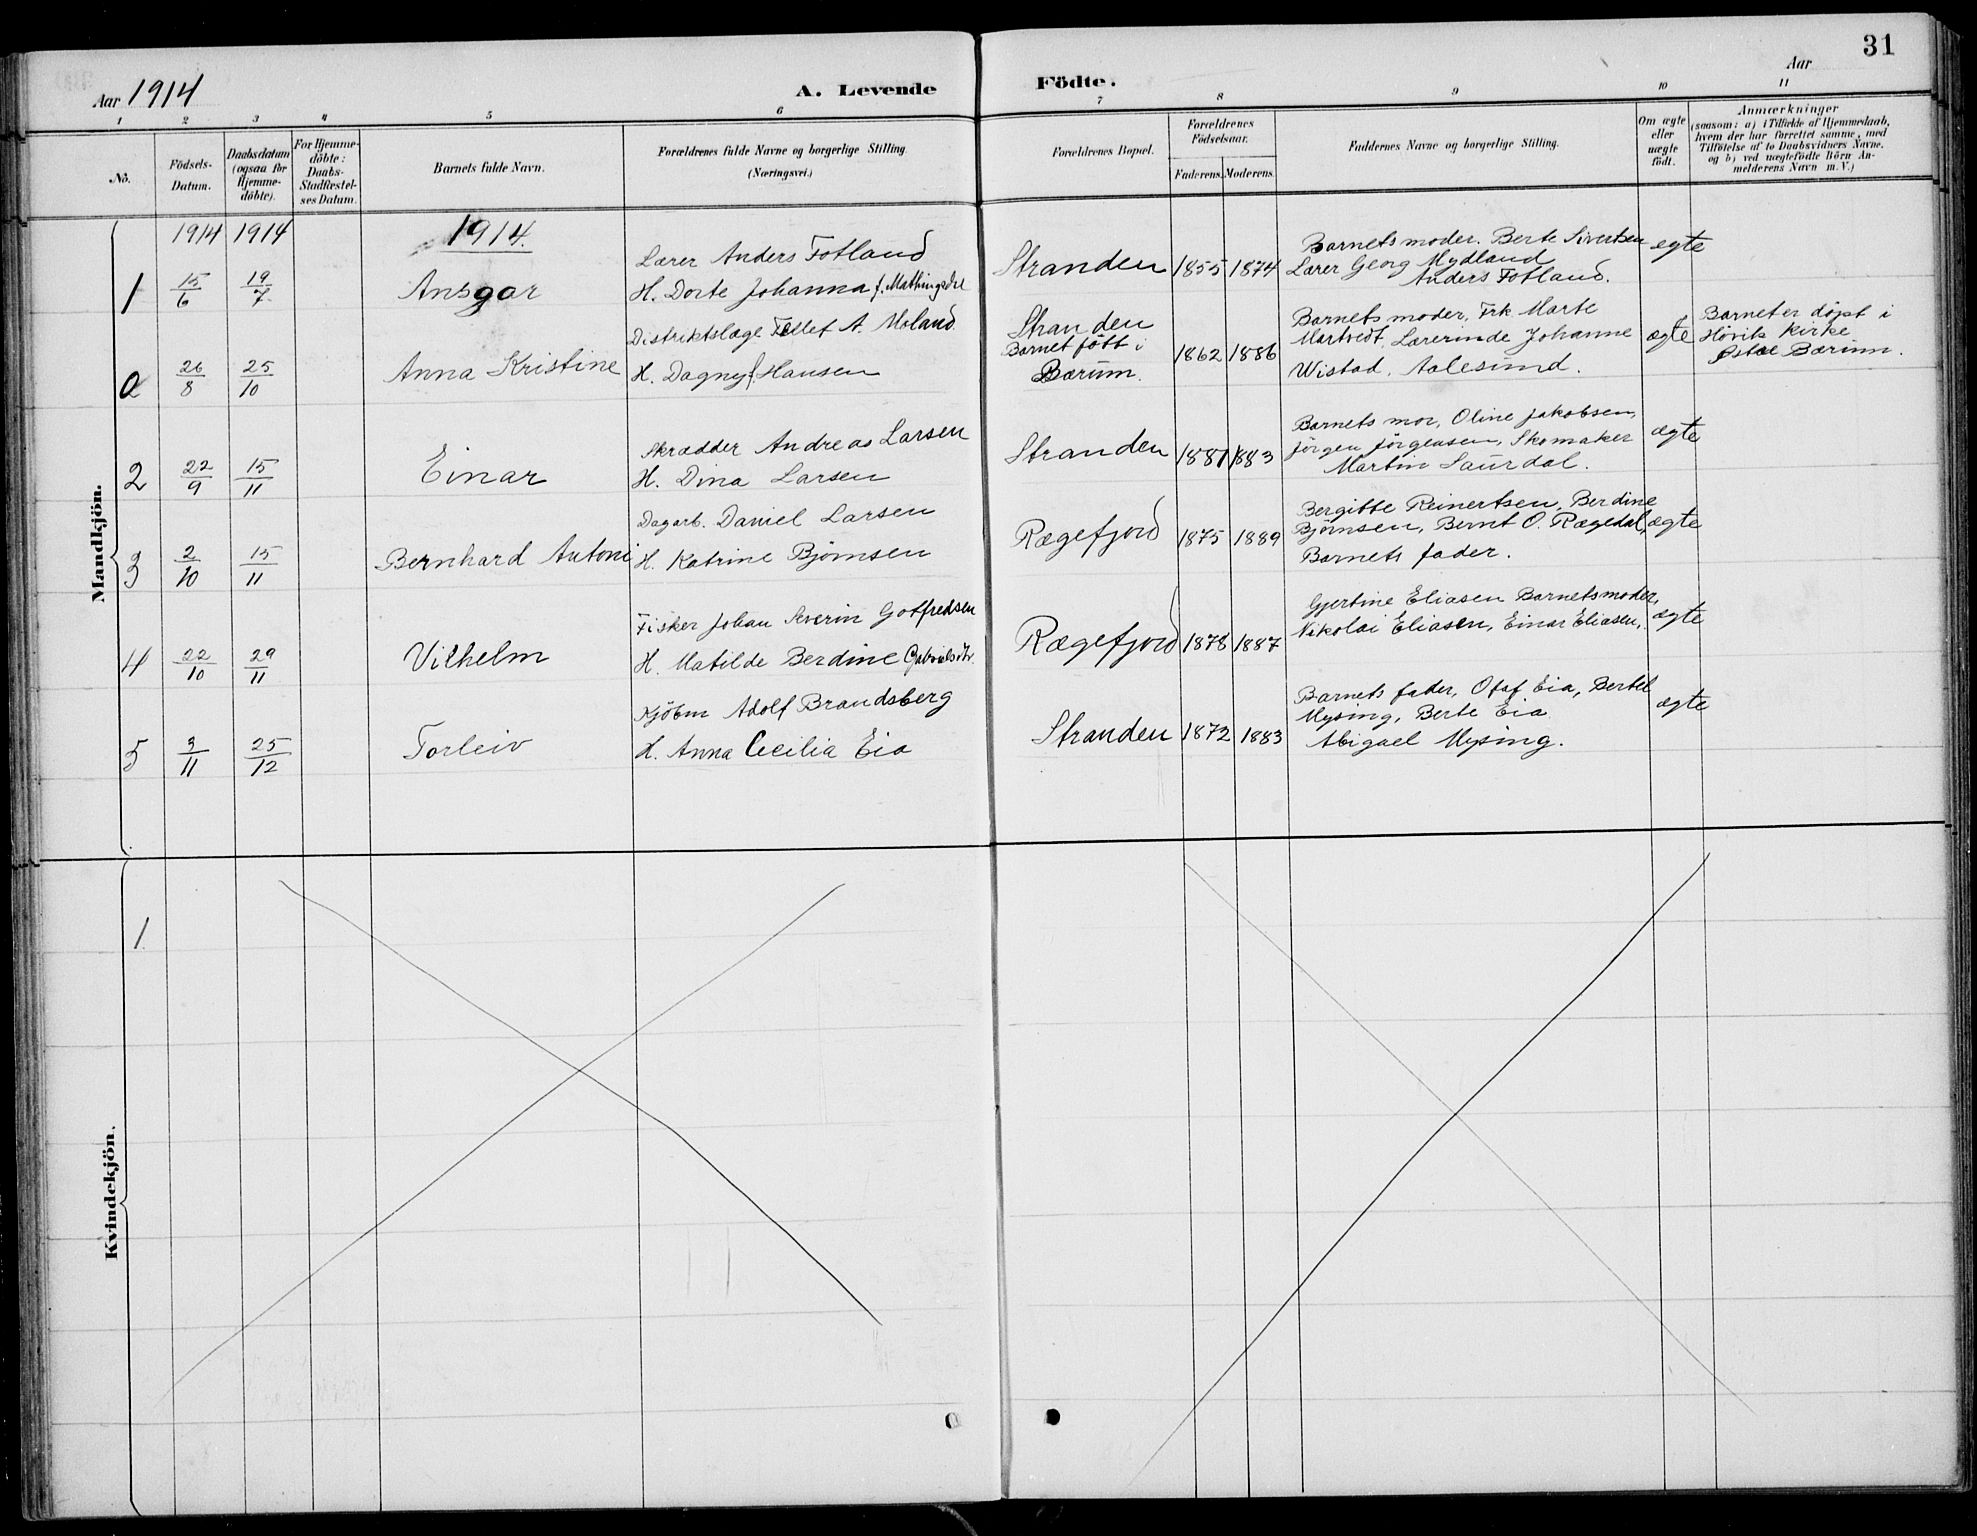 31
Aar 1914
A. Levende
Födte.
Aar
1
2
3
4
5
6
7
8
9
10
11
No.
Födsels-
Datum.
Daabsdatum
(ogsaa for
Hjemme-
döbte).
For Hjemme-
döbte:
Daabs-
Stadfæstel-
ses Datum.
Barnets fulde Navn.
Forældrenes fulde Navne og borgerlige Stilling.
(Næringsvei.)
Forældrenes Bopæl.
Forældrenes
Födselsaar.
Faderens.
Moderens.
Faddernes Navne og borgerlige Stilling.
Om ægte
eller
uægte
födt.
Anmærkninger
(saasom: a) i Tilfælde af Hjemmedaab,
hvem der har forrettet samme, med
Tilföielse af to Daabsvidners Navne.
og b) ved uægtefödte Börn An-
melderens Navn m. V.)
Mandkjön.
1914
1914
1914.
1
15/6
19/7
Ansgar
Lærer Anders Fotland
H. Dorte Johanna f. Mathingsdal
Stranden
1855
1874
Barnets moder. Berte Sivertsen
Lærer Georg Mydland
Anders Fotland.
egte
0
26/8
25/10
Anna Kristine
Distriktslæge Tellef A. Moland
H. Dagny f. Hansen
Stranden
Barnet fött i
Bærum.
1862
1886
Barnets moder, Frk Marte
Martvedt, Lærerinde Johanne
Wistad, Aalesund.
ægte
Barnet er döpt i
Hövik Kirke
Östre Bærum.
2
22/9
15/11
Einar
Skrædder Andreas Larsen
H. Dina Larsen
Stranden
1881
1883
Barnets mor, Oline Jakobsen,
Jörgen Jörgensen, Skomaker
Martin Saurdal.
ægte
3
2/10
15/11
Bernhard Antoni
Dagarb. Daniel Larsen
H. Katrine Björnsen
Rægefjord
1875
1889
Bergitte Reinertsen, Berdine
Björnsen, Bernt O. Rægedal,
Barnets fader.
ægte
4
22/10
29/11
Vilhelm
Fisker Johan Severin Gotfredsen
H. Matilde Berdine Gabrielsdtr.
Rægefjord
1878
1887
Gjertine Eliasen Barnets moder,
Nikolai Eliasen, Einar Eliasen,
ægte
5
3/11
25/12
Torleiv
Kjöbm Adolf Brandsberg
H. Anna Cecilia Eia
Stranden
1872
1883
Barnets fader, Olaf Eia, Bertel
Mysing, Berte Eia
Abigael Mysing.
ægte
Kvindekjön.
1